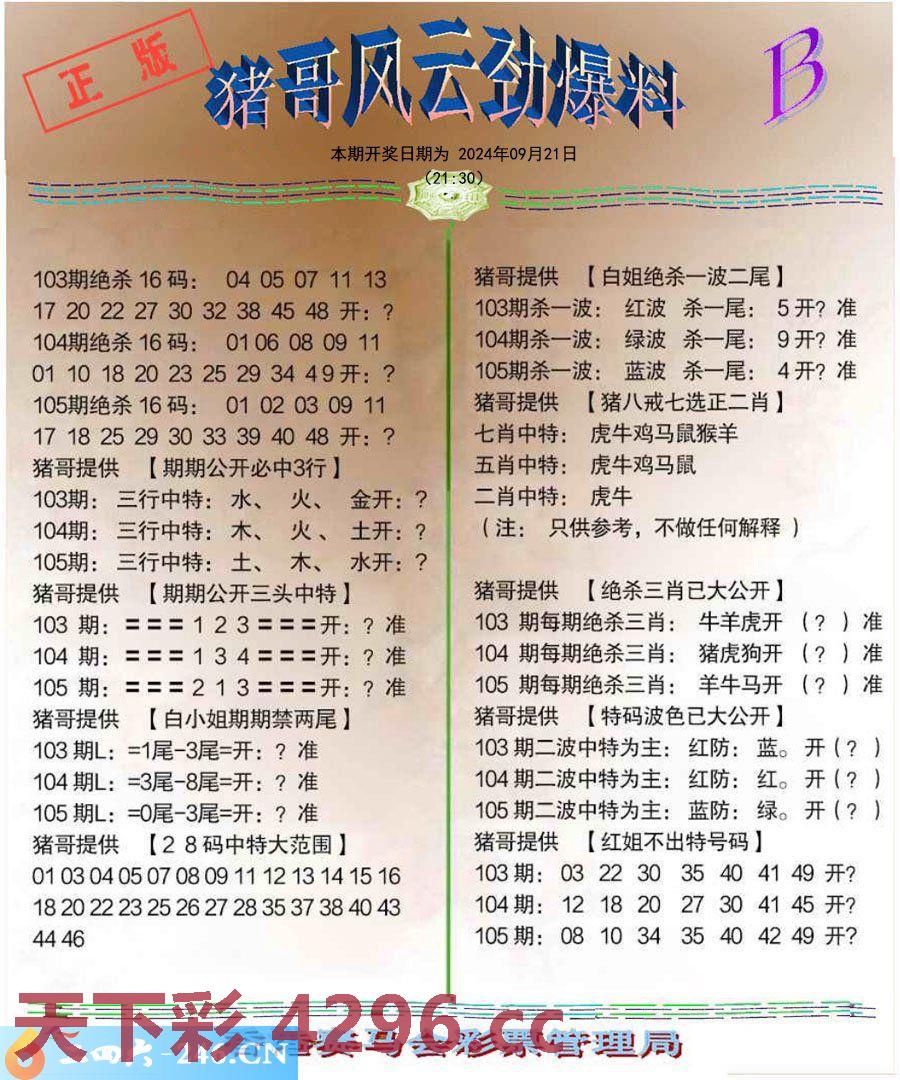 正版
猪哥风云劲爆料
B
本期开奖日期为 2024年09月21日
(21:30)
103期绝杀16码： 04 05 07 11 13
17 20 22 27 30 32 38 45 48 开：?
104期绝杀16码： 01 06 08 09 11
01 10 18 20 23 25 29 34 49 开：?
105期绝杀16码： 01 02 03 09 11
17 18 25 29 30 33 39 40 48 开：?
猪哥提供 【期期公开必中3行】
103期： 三行中特：水、 火、 金开：?
104期： 三行中特：木、 火、 土开：?
105期： 三行中特：土、 木、 水开：?
猪哥提供 【期期公开三头中特】
103 期：===１２３===开：? 准
104 期：===１３４===开：? 准
105 期：===２１３===开：? 准
猪哥提供 【白小姐期期禁两尾】
103期L：=1尾-3尾=开：? 准
104期L：=3尾-8尾=开：? 准
105期L：=0尾-3尾=开：? 准
猪哥提供 【２８码中特大范围】
01 03 04 05 07 08 09 11 12 13 14 15 16
18 20 22 23 25 26 27 28 35 37 38 40 43
44 46
猪哥提供 【白姐绝杀一波二尾】
103期杀一波： 红波 杀一尾： 5开? 准
104期杀一波： 绿波 杀一尾： 9开? 准
105期杀一波： 蓝波 杀一尾： 4开? 准
猪哥提供 【猪八戒七选正二肖】
七肖中特： 虎牛鸡马鼠猴羊
五肖中特： 虎牛鸡马鼠
二肖中特： 虎牛
（注： 只供参考，不做任何解释 ）
猪哥提供 【绝杀三肖已大公开】
103 期每期绝杀三肖： 牛羊虎开 （? ）准
104 期每期绝杀三肖： 猪虎狗开 （? ）准
105 期每期绝杀三肖： 羊牛马开 （? ）准
猪哥提供 【特码波色已大公开】
103 期二波中特为主：红防：蓝。开(? )
104 期二波中特为主：红防：红。开(? )
105 期二波中特为主：蓝防：绿。开(? )
猪哥提供 【红姐不出特号码】
103 期： 03 22 30 35 40 41 49 开?
104 期： 12 18 20 27 30 41 45 开?
105 期： 08 10 34 35 40 42 49 开?
天下彩 4296.cc
二四六-246.CN
马会彩票管理局